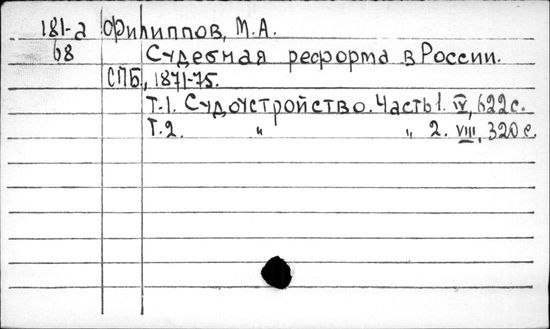 181-а Филиппов, М.А.
68 Судебная реформа в России.
СПБ, 1871-75.
Т.1. Судоустройство. Часть 1. IV, 622 с.
Т.2. " " 2. VIII, 320 с.